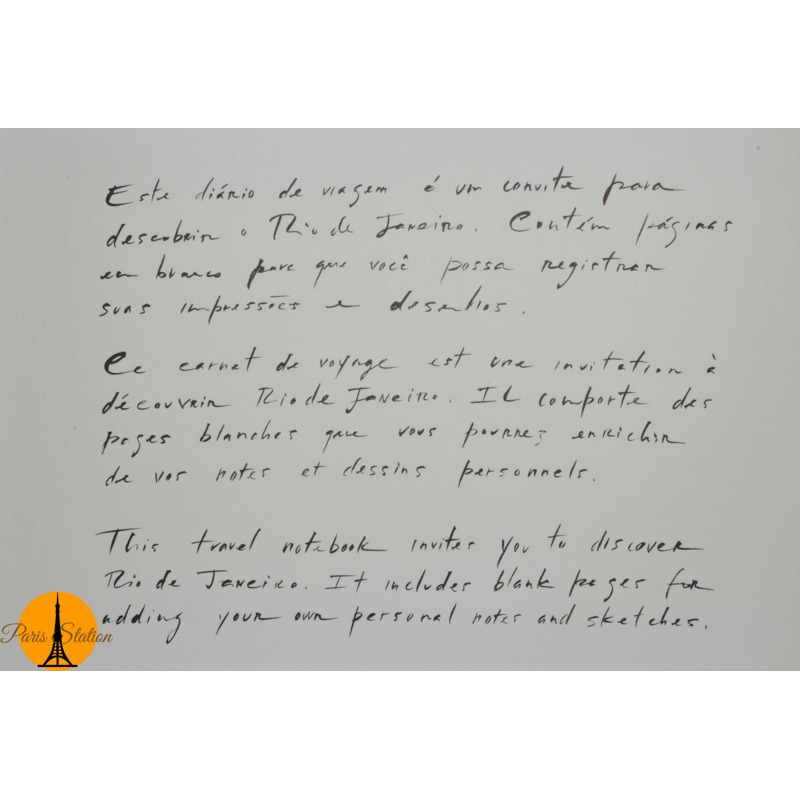 Este diário de viagem é um convite para
descobrir o Rio de Janeiro. Contém páginas
em branco para que você possa registrar
suas impressões e desenhos.
Ce carnet de voyage est une invitation à
découvrir Rio de Janeiro. Il comporte des
pages blanches que vous pourrez enrichir
de vos notes et dessins personnels.
This travel notebook invites you to discover
Rio de Janeiro. It includes blank pages for
adding your own personal notes and sketches.
Paris Station